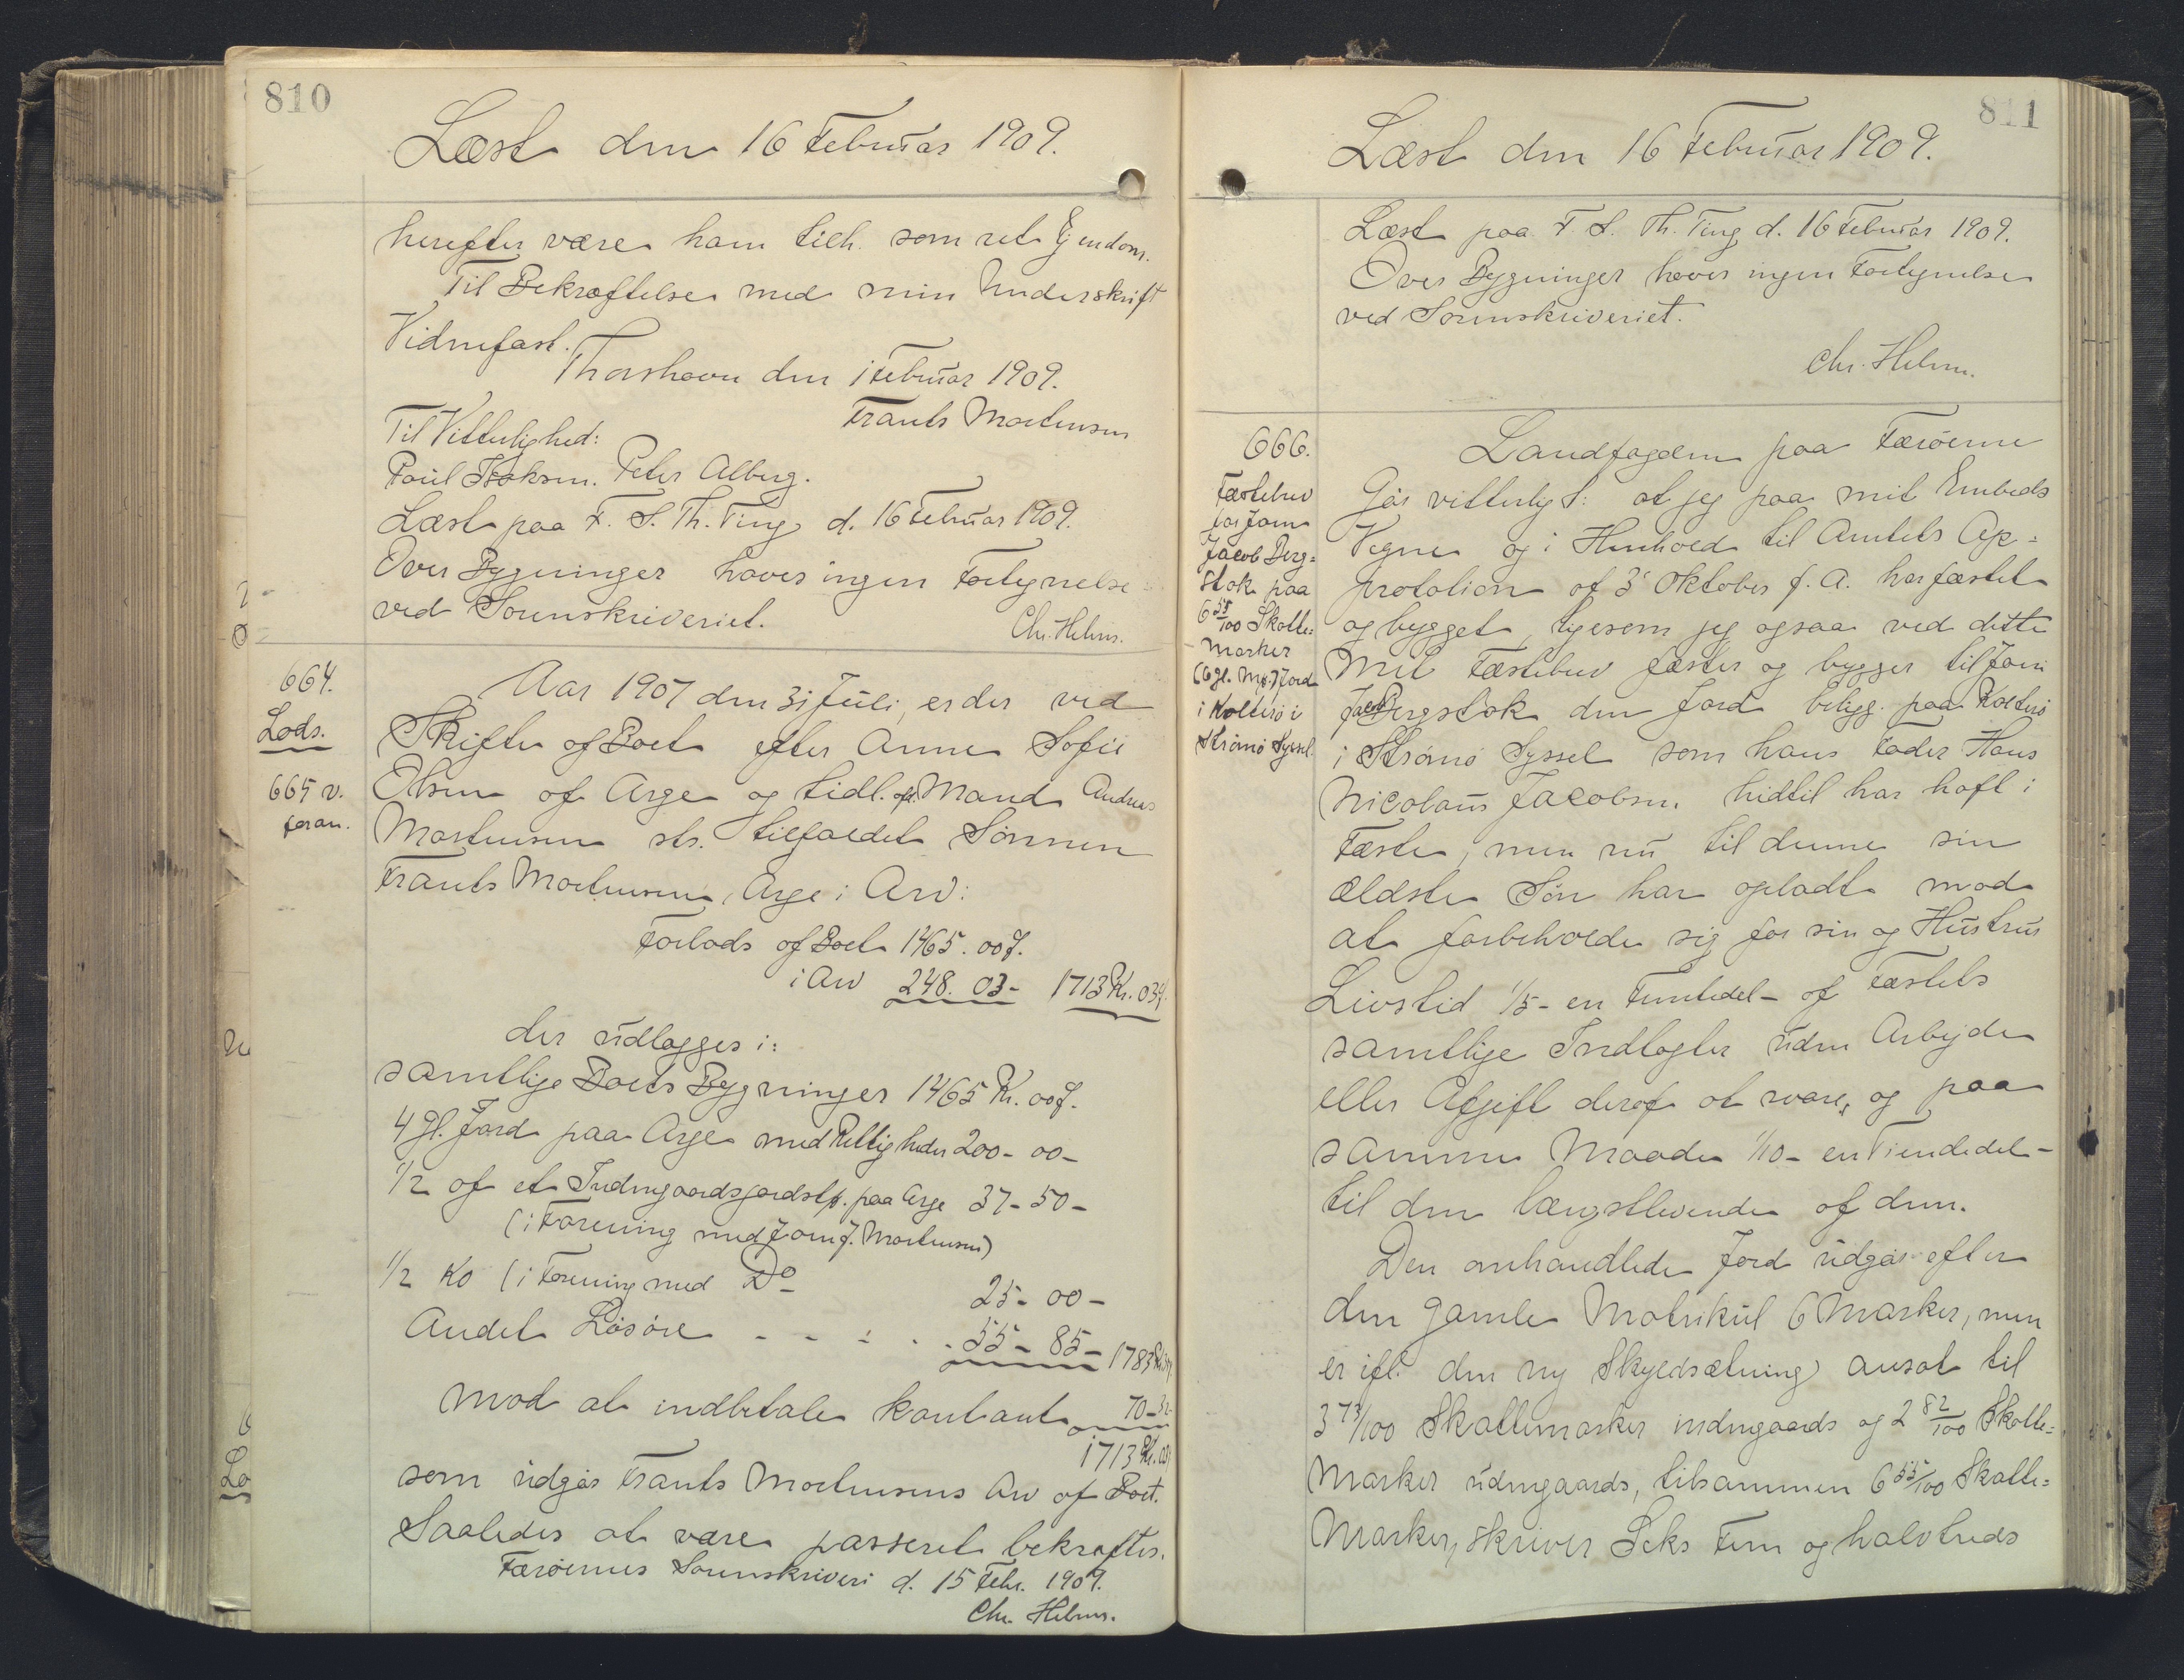 810
Læst den 16 Februar 1909.
herefter være ham tilh. som ret Ejendom.
Til Bekræftelse med min Underskrift
Vidnefast.
Thorshavn den 1 Februar 1909.
Frants Mortensen
Til Vitterlighed:
Poul Isaksen. Peter Alberg.
Læst paa F. S. Th. Ting d. 16 Februar 1909.
Over Bygninger haves ingen Fortegnelse
ved Sorenskriveriet.
Chr. Helms.
664.
Lods.
665 v.
foran.
Aar 1907 den 31 Juli, er der ved
Skifte af Boet efter Anne Sofie
Olsen af Arge og tidl. afd. Mand Andreas
Mortensen sts. tilfaldet Sønnen
Frants Mortensen, Arge i Arv:
Forlods af Boet 1465. 00 Ø.
i Arv 248. 03 - 1713 Kr. 03 Ø.
der udlægges i:
samtlige Boets Bygninger 1465 Kr. 00 Ø.
4 Gl. Jord paa Arge med Rettigheder 200 - 00 -
1/2 af et Indengaardsjordst. paa Arge 37 - 50 -
(i Forening med Joen J. Mortensen)
1/2 Ko (i Forening med Do 25 - 00 -
Andel Løsøre - - - - 55 - 85 - 1783 Kr. 35 Ø.
mod at indbetale kontant 70 - 32
1713 Kr. 03
som udgør Frants Mortensens Arv af Boet.
Saaledes at være passeret bekræftes.
Færøernes Sorenskriveri d. 15 Febr. 1909.
Chr. Helms.
811
Læst den 16 Februar 1909.
Læst paa F. S. Th. Ting d. 16 Februar 1909.
Over Bygninger haves ingen Fortegnelse
ved Sorenskriveriet.
Chr. Helms.
666.
Fæstebrev
for Joen
Jacob Berg=
stok paa
6 55/100 Skatte=
marker
(6 gl. Mk.) Jord
i Kolterø i
Strømø Syssel.
Landfogden paa Færøerne
Gør vitterligt: at jeg paa mit Embeds
Vegne og i Henhold til Amtets Ap=
probation af 3' Oktober f. A. har fæstet
og bygget, ligesom jeg ogsaa ved dette
mit Fæstebrev fæster og bygger til Joen
Jacob Bergstok den Jord beligg. paa Kolterø
i Strømø Syssel som hans Fader Hans
Nicolaus Jacobsen hidtil har haft i
Fæste, men nu til denne sin
ældste Søn har opladt mod
at forbeholde sig for sin og Hustrus
Livstid 1/5 - en Femtedel - af Fæstets
samtlige Indtægter uden Arbejde
eller Afgift deraf at svare, og paa
samme Maade 1/10 - en Tiendedel -
til den længstlevende af dem.
Den omhandlede Jord udgør efter
den gamle Matrikul 6 Marker, men
er ifl. den ny Skyldsætning ansat til
3 73/100 Skattemarker indengaards og 2 82/100 Skatte=
marker udengaards, tilsammen 6 55/100 Skatte=
marker, skriver Seks Fem og halvtreds